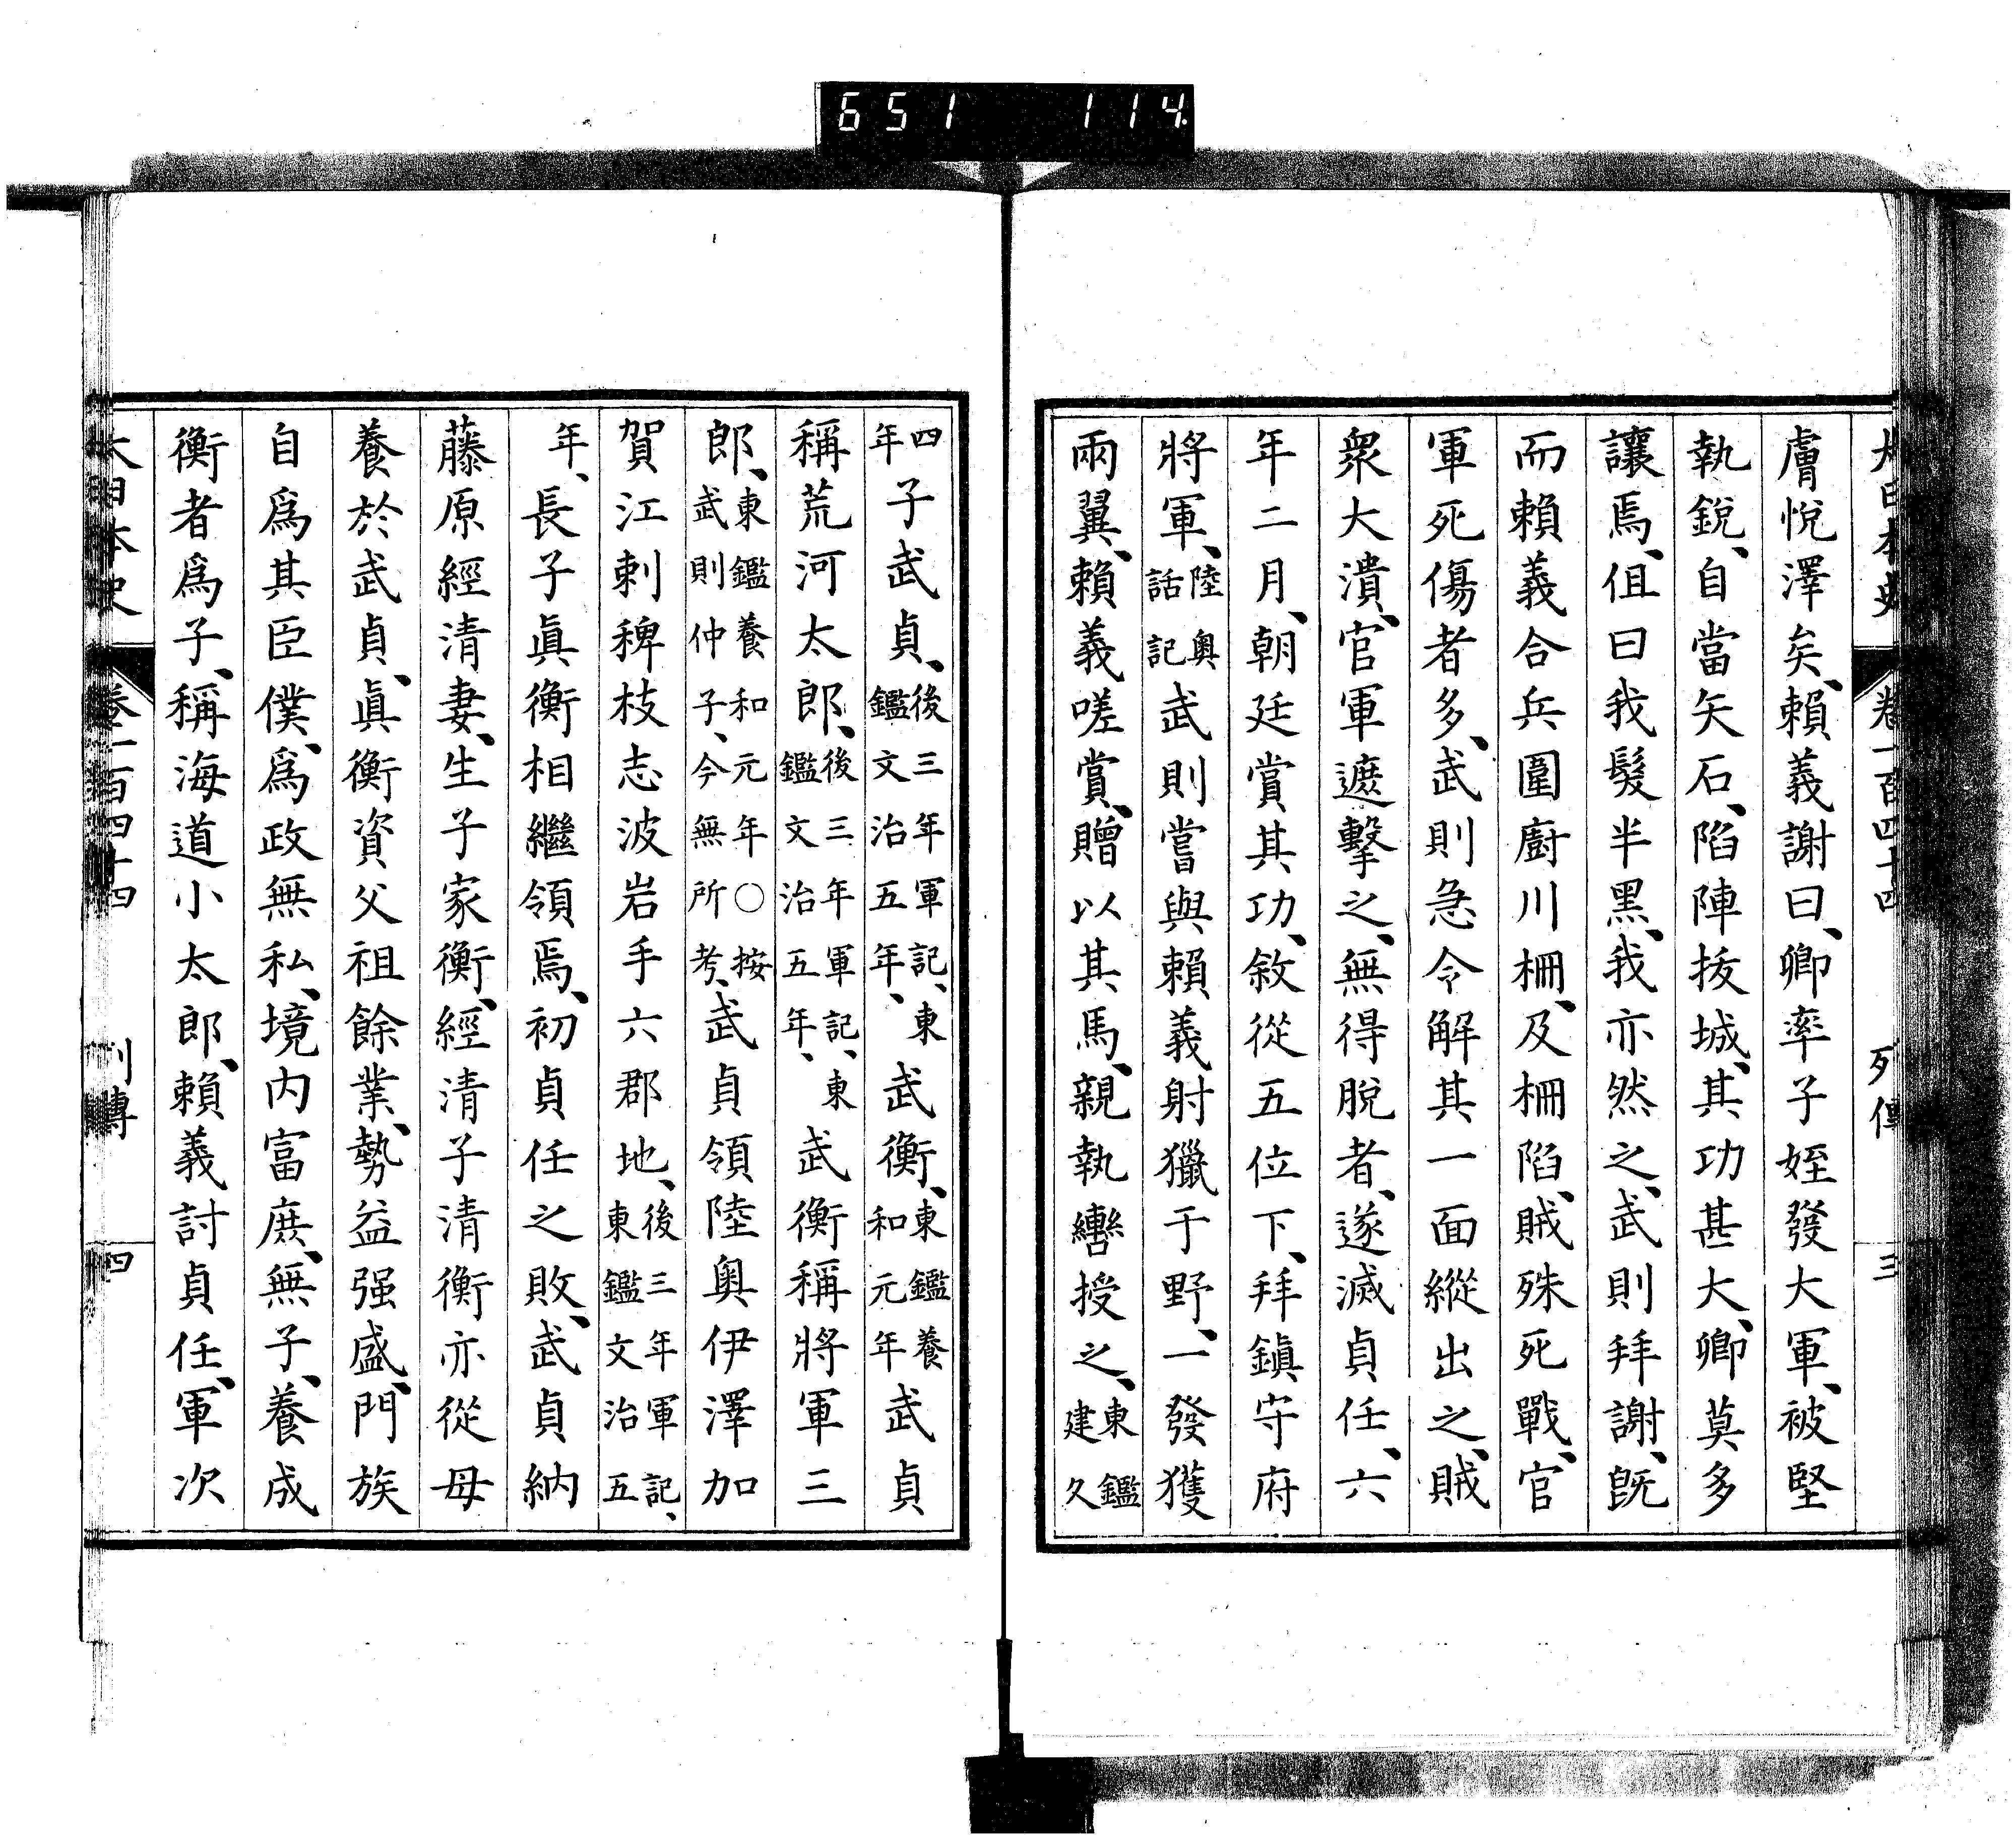 651 114
大日本史 卷一百四十四 列傳 三
膚悅澤矣、賴義謝曰、卿率子姪發大軍、被堅
執銳、自當矢石、陷陣拔城、其功甚大、卿莫多
讓焉、但曰我髮半黑、我亦然之、武則拜謝、旣
而賴義合兵圍廚川柵、及柵陷、賊殊死戰、官
軍死傷者多、武則急令解其一面縱出之、賊
衆大潰、官軍遮擊之、無得脫者、遂滅貞任、六
年二月、朝廷賞其功、敘從五位下、拜鎭守府
將軍、陸奧話記武則嘗與賴義射獵于野、一發獲
兩翼、賴義嗟賞、贈以其馬、親執轡授之、東鑑建久
四年子武貞、後三年軍記、東鑑文治五年、武衡、東鑑養和元年武貞
稱荒河太郎、後三年軍記、東鑑文治五年、武衡稱將軍三
郎、東鑑養和元年○按武則仲子、今無所考、武貞領陸奧伊澤加
賀江刺稗枝志波岩手六郡地、後三年軍記、東鑑文治五
年、長子眞衡相繼領焉、初貞任之敗、武貞納
藤原經清妻、生子家衡、經清子清衡亦從母
養於武貞、眞衡資父祖餘業、勢益强盛、門族
自爲其臣僕、爲政無私、境内富庶、無子、養成
衡者爲子、稱海道小太郎、賴義討貞任、軍次
大日本史 卷一百四十四 列傳 四